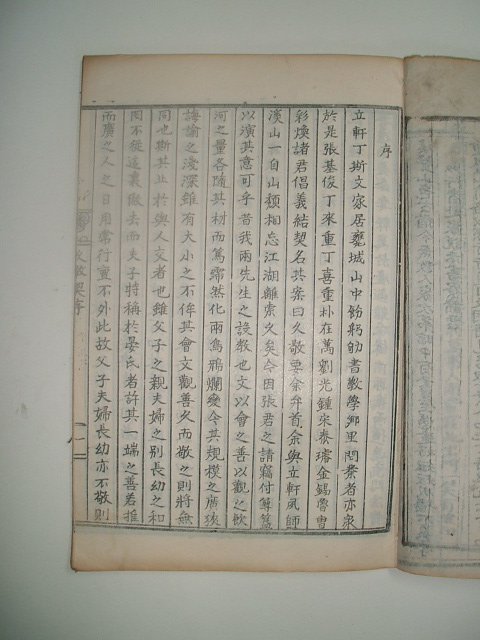 序
立軒丁斯文家居甕城山中飭躬劬書敎學鄉里問業者亦衆
於是張基俊丁來重丁喜重朴在萬劉光鍾宋養璿金錫魯曺
彩煥諸君倡義結契名其案曰久敬要余弁首余與立軒風師
淡山一自山頹相忘江湖離索久矣今因張君之請竊付簞篙
以演其意可乎昔我兩先生之設敎也文以會之善以觀之飮
河之量各隨其材而篤霈然化雨蔦斐斕變今其規模之廣狹
誨諭之淺深雖有大小之不侔其會文觀善久而敬之則將無
同也斯其止於與人交者也雖父子之親夫婦之別長幼之和
罔不從這裏做去而夫子特稱於晏氏者許其一端之善若推
而廣之人之日用常行亶不外此故父子夫婦長幼亦不敬則
久敬契序
一